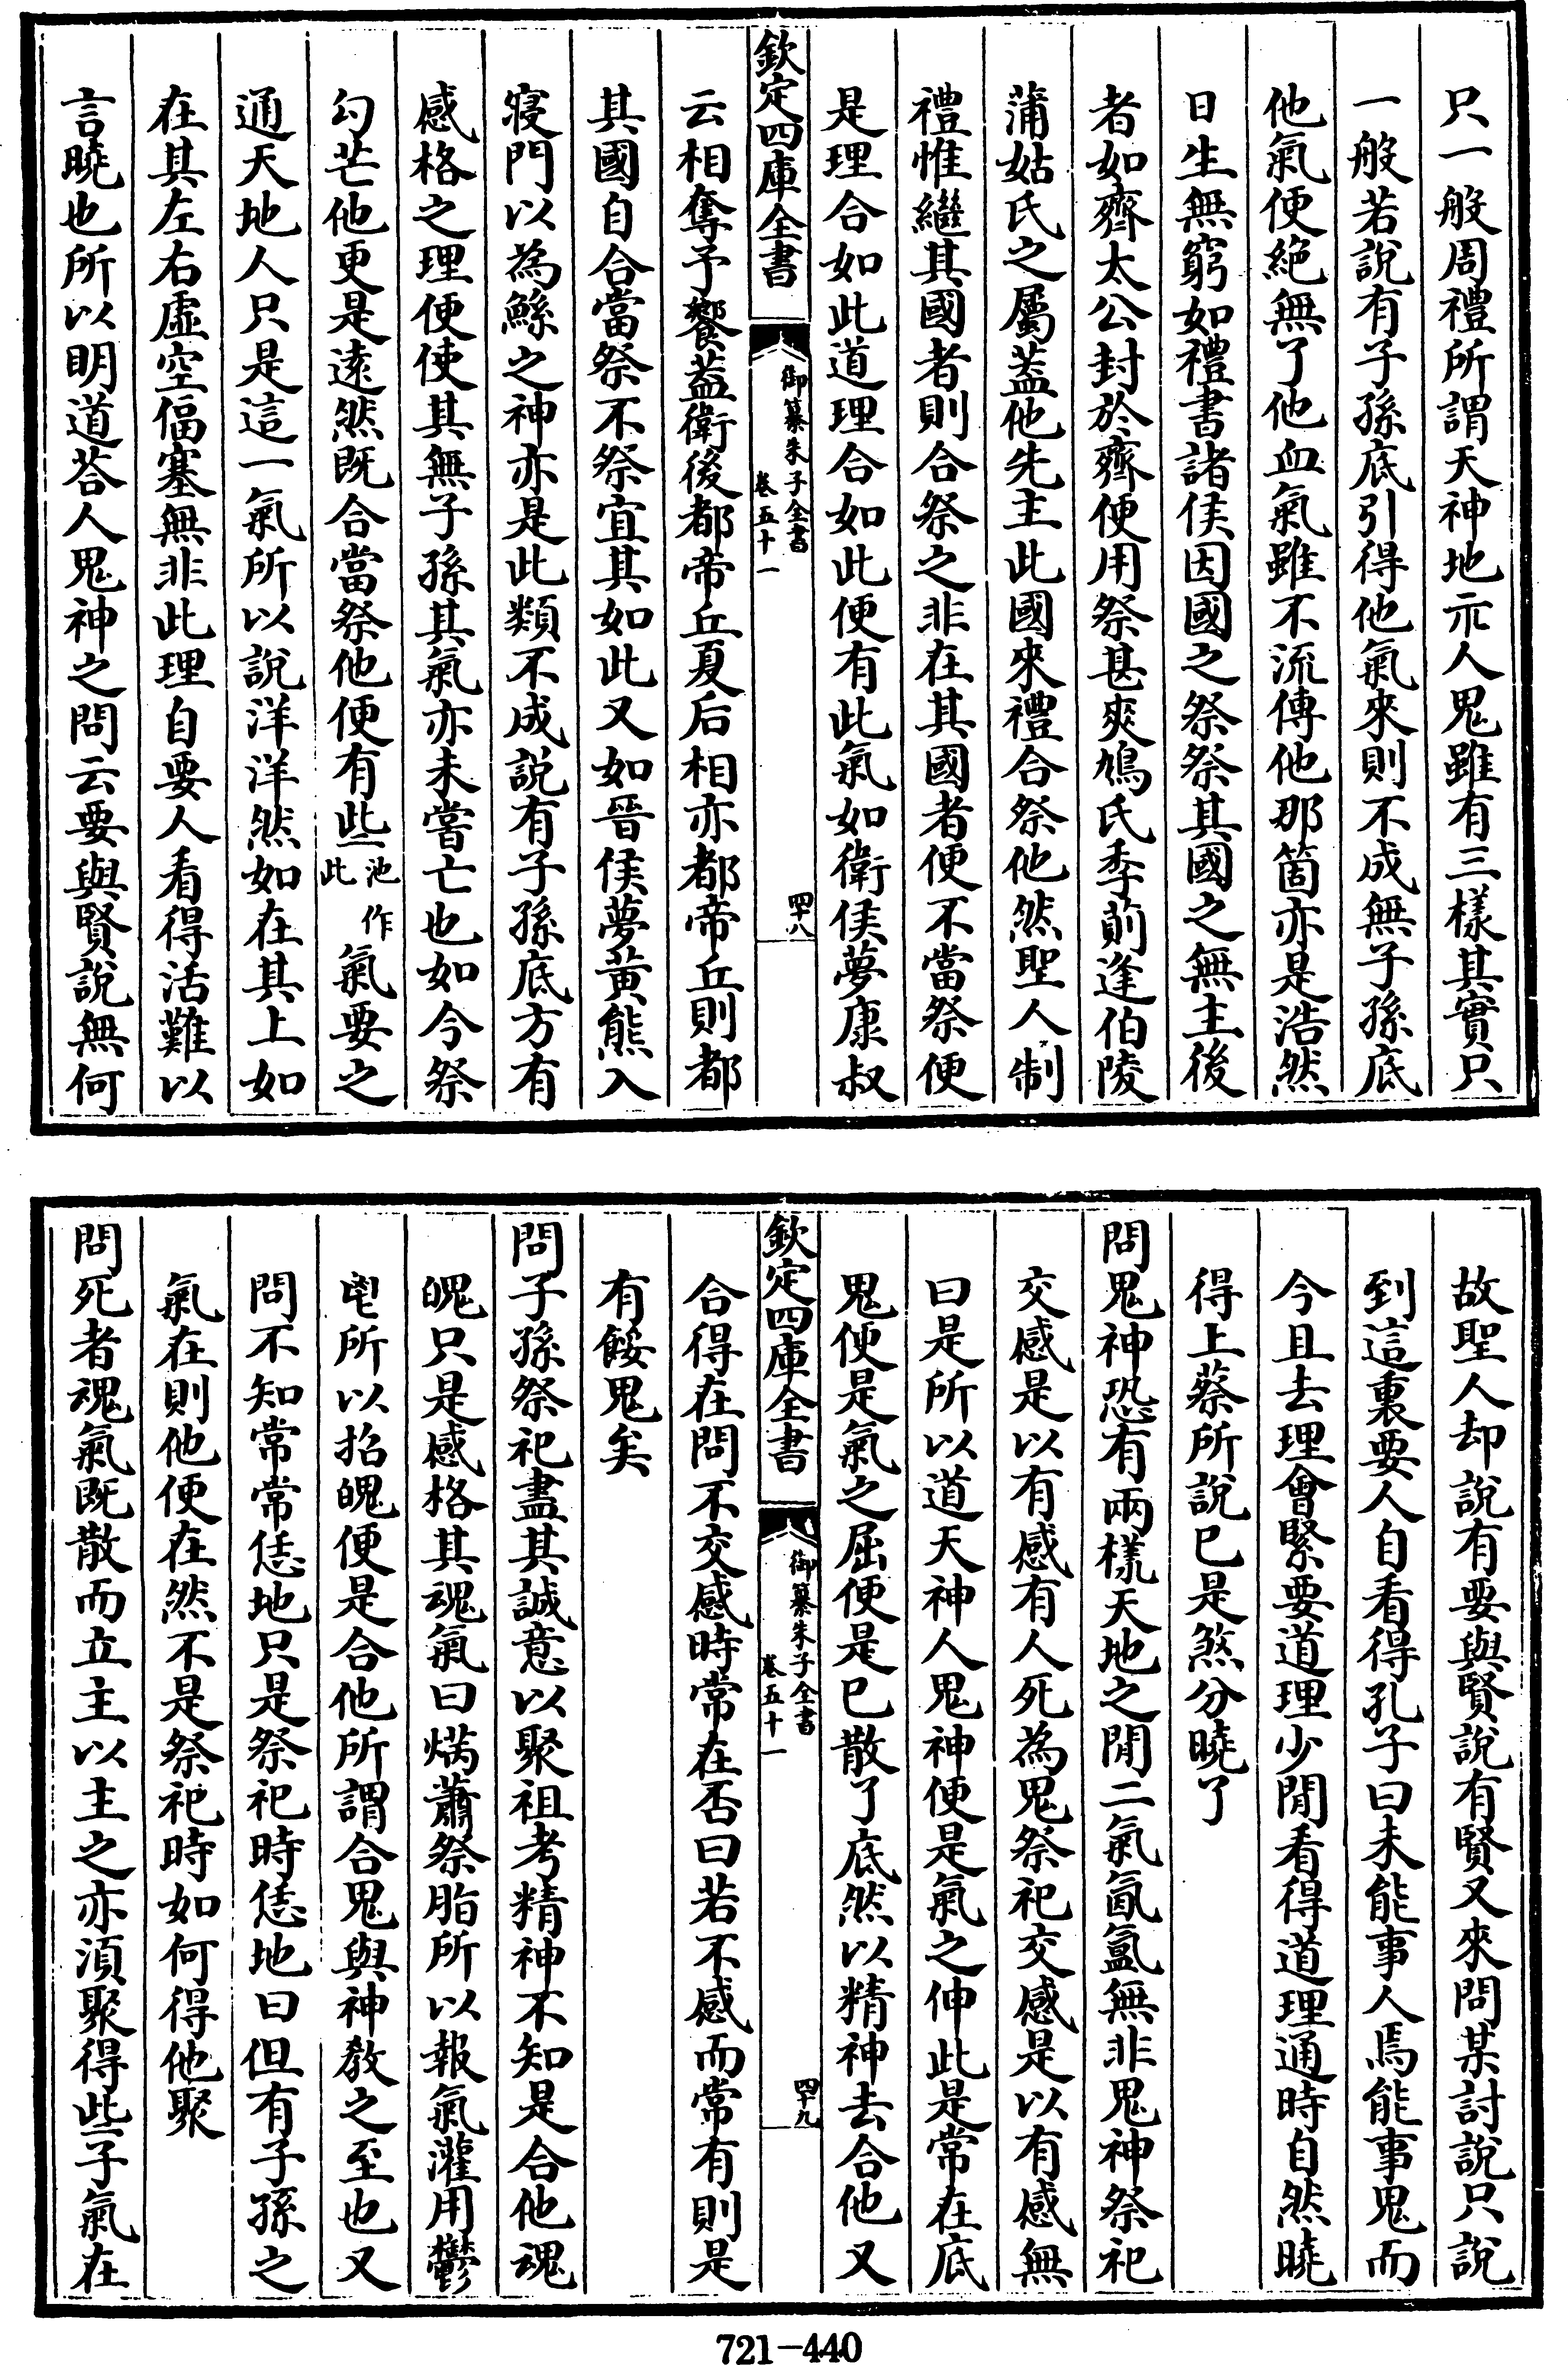 只一般周禮所謂天神地示人鬼雖有三樣其實只
一般若說有子孫底引得他氣來則不成無子孫底
他氣便絶無了他血氣雖不流傳他那箇亦是浩然
日生無窮如禮書諸侯因國之祭祭其國之無主後
者如齊太公封於齊便用祭甚爽鳩氏季萴逢伯陵
蒲姑氏之屬蓋他先主此國來禮合祭他然聖人制
禮惟繼其國者則合祭之非在其國者便不當祭便
是理合如此道理合如此便有此氣如衛侯夢康叔
欽定四庫全書
御纂朱子全書
卷五十一
四十八
云相奪予饗蓋衛後都帝丘夏后相亦都帝丘則都
其國自合當祭不祭宜其如此又如晉侯夢黄熊入
寢門以為鯀之神亦是此類不成說有子孫底方有
感格之理便使其無子孫其氣亦未嘗亡也如今祭
勾芒他更是逺然既合當祭他便有些池作此氣要之
通天地人只是這一氣所以說洋洋然如在其上如
在其左右虚空偪塞無非此理自要人看得活難以
言曉也所以明道荅人鬼神之問云要與賢說無何
故聖人却說有要與賢說有賢又來問某討說只說
到這裏要人自看得孔子曰未能事人焉能事鬼而
今且去理會緊要道理少間看得道理通時自然曉
得上蔡所說已是煞分曉了
問鬼神恐有兩様天地之間二氣氤氲無非鬼神祭祀
交感是以有感有人死為鬼祭祀交感是以有感無
曰是所以道天神人鬼神便是氣之伸此是常在底
鬼便是氣之屈便是已散了底然以精神去合他又
欽定四庫全書
御纂朱子全書
卷五十一
四十九
合得在問不交感時常在否曰若不感而常有則是
有餒鬼矣
問子孫祭祀盡其誠意以聚祖考精神不知是合他魂
魄只是感格其魂氣曰焫蕭祭脂所以報氣灌用鬱
鬯所以招魄便是合他所謂合鬼與神教之至也又
問不知常常恁地只是祭祀時恁地曰但有子孫之
氣在則他便在然不是祭祀時如何得他聚
問死者魂氣既散而立主以主之亦須聚得些子氣在
721-440